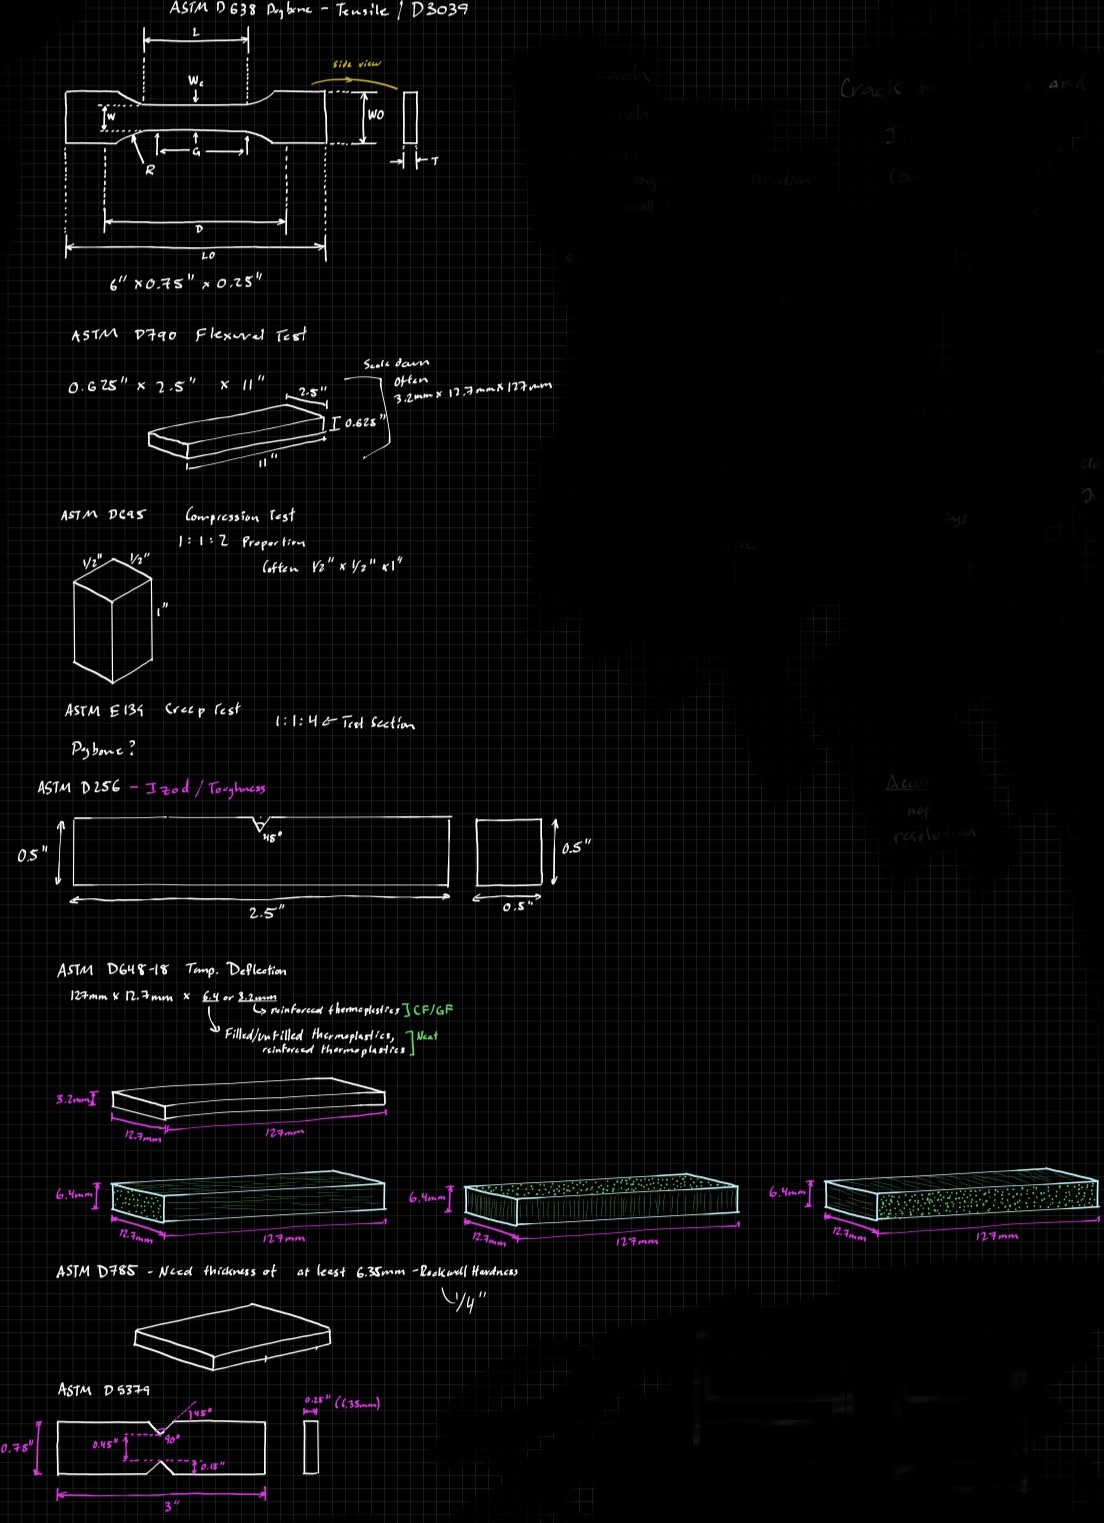 ASTM D638 Dogbone - Tensile / D3039
L
Side view
Wc
W
WO
G
R
T
D
LO
6" x 0.75" x 0.25"
ASTM D790 Flexural Test
0.625" x 2.5" x 11"
Scale down
Often
3.2mm x 12.7mm x 127mm
2.5"
0.625"
11"
ASTM D695 Compression Test
1:1:2 Proportion
(often 1/2" x 1/2" x 1"
1/2" 1/2"
1"
ASTM E139 Creep Test
1:1:4 ← Test Section
Dogbone?
ASTM D256 - Izod / Toughness
45°
0.5"
0.5"
2.5"
0.5"
Accuracy
not
resolution
ASTM D648-18 Temp. Deflection
127mm x 12.7mm x 6.4 or 3.2mm
→ reinforced thermoplastics ] CF/GF
Filled/unfilled thermoplastics,
reinforced thermoplastics ] Neat
3.2mm
12.7mm 127mm
6.4mm 6.4mm 6.4mm
12.7mm 127mm 12.7mm 127mm 12.7mm 127mm
ASTM D785 - Need thickness of at least 6.35mm - Rockwell Hardness
1/4"
ASTM D5379
0.25" (6.35mm)
45°
90°
0.75"
0.45"
0.15"
3"